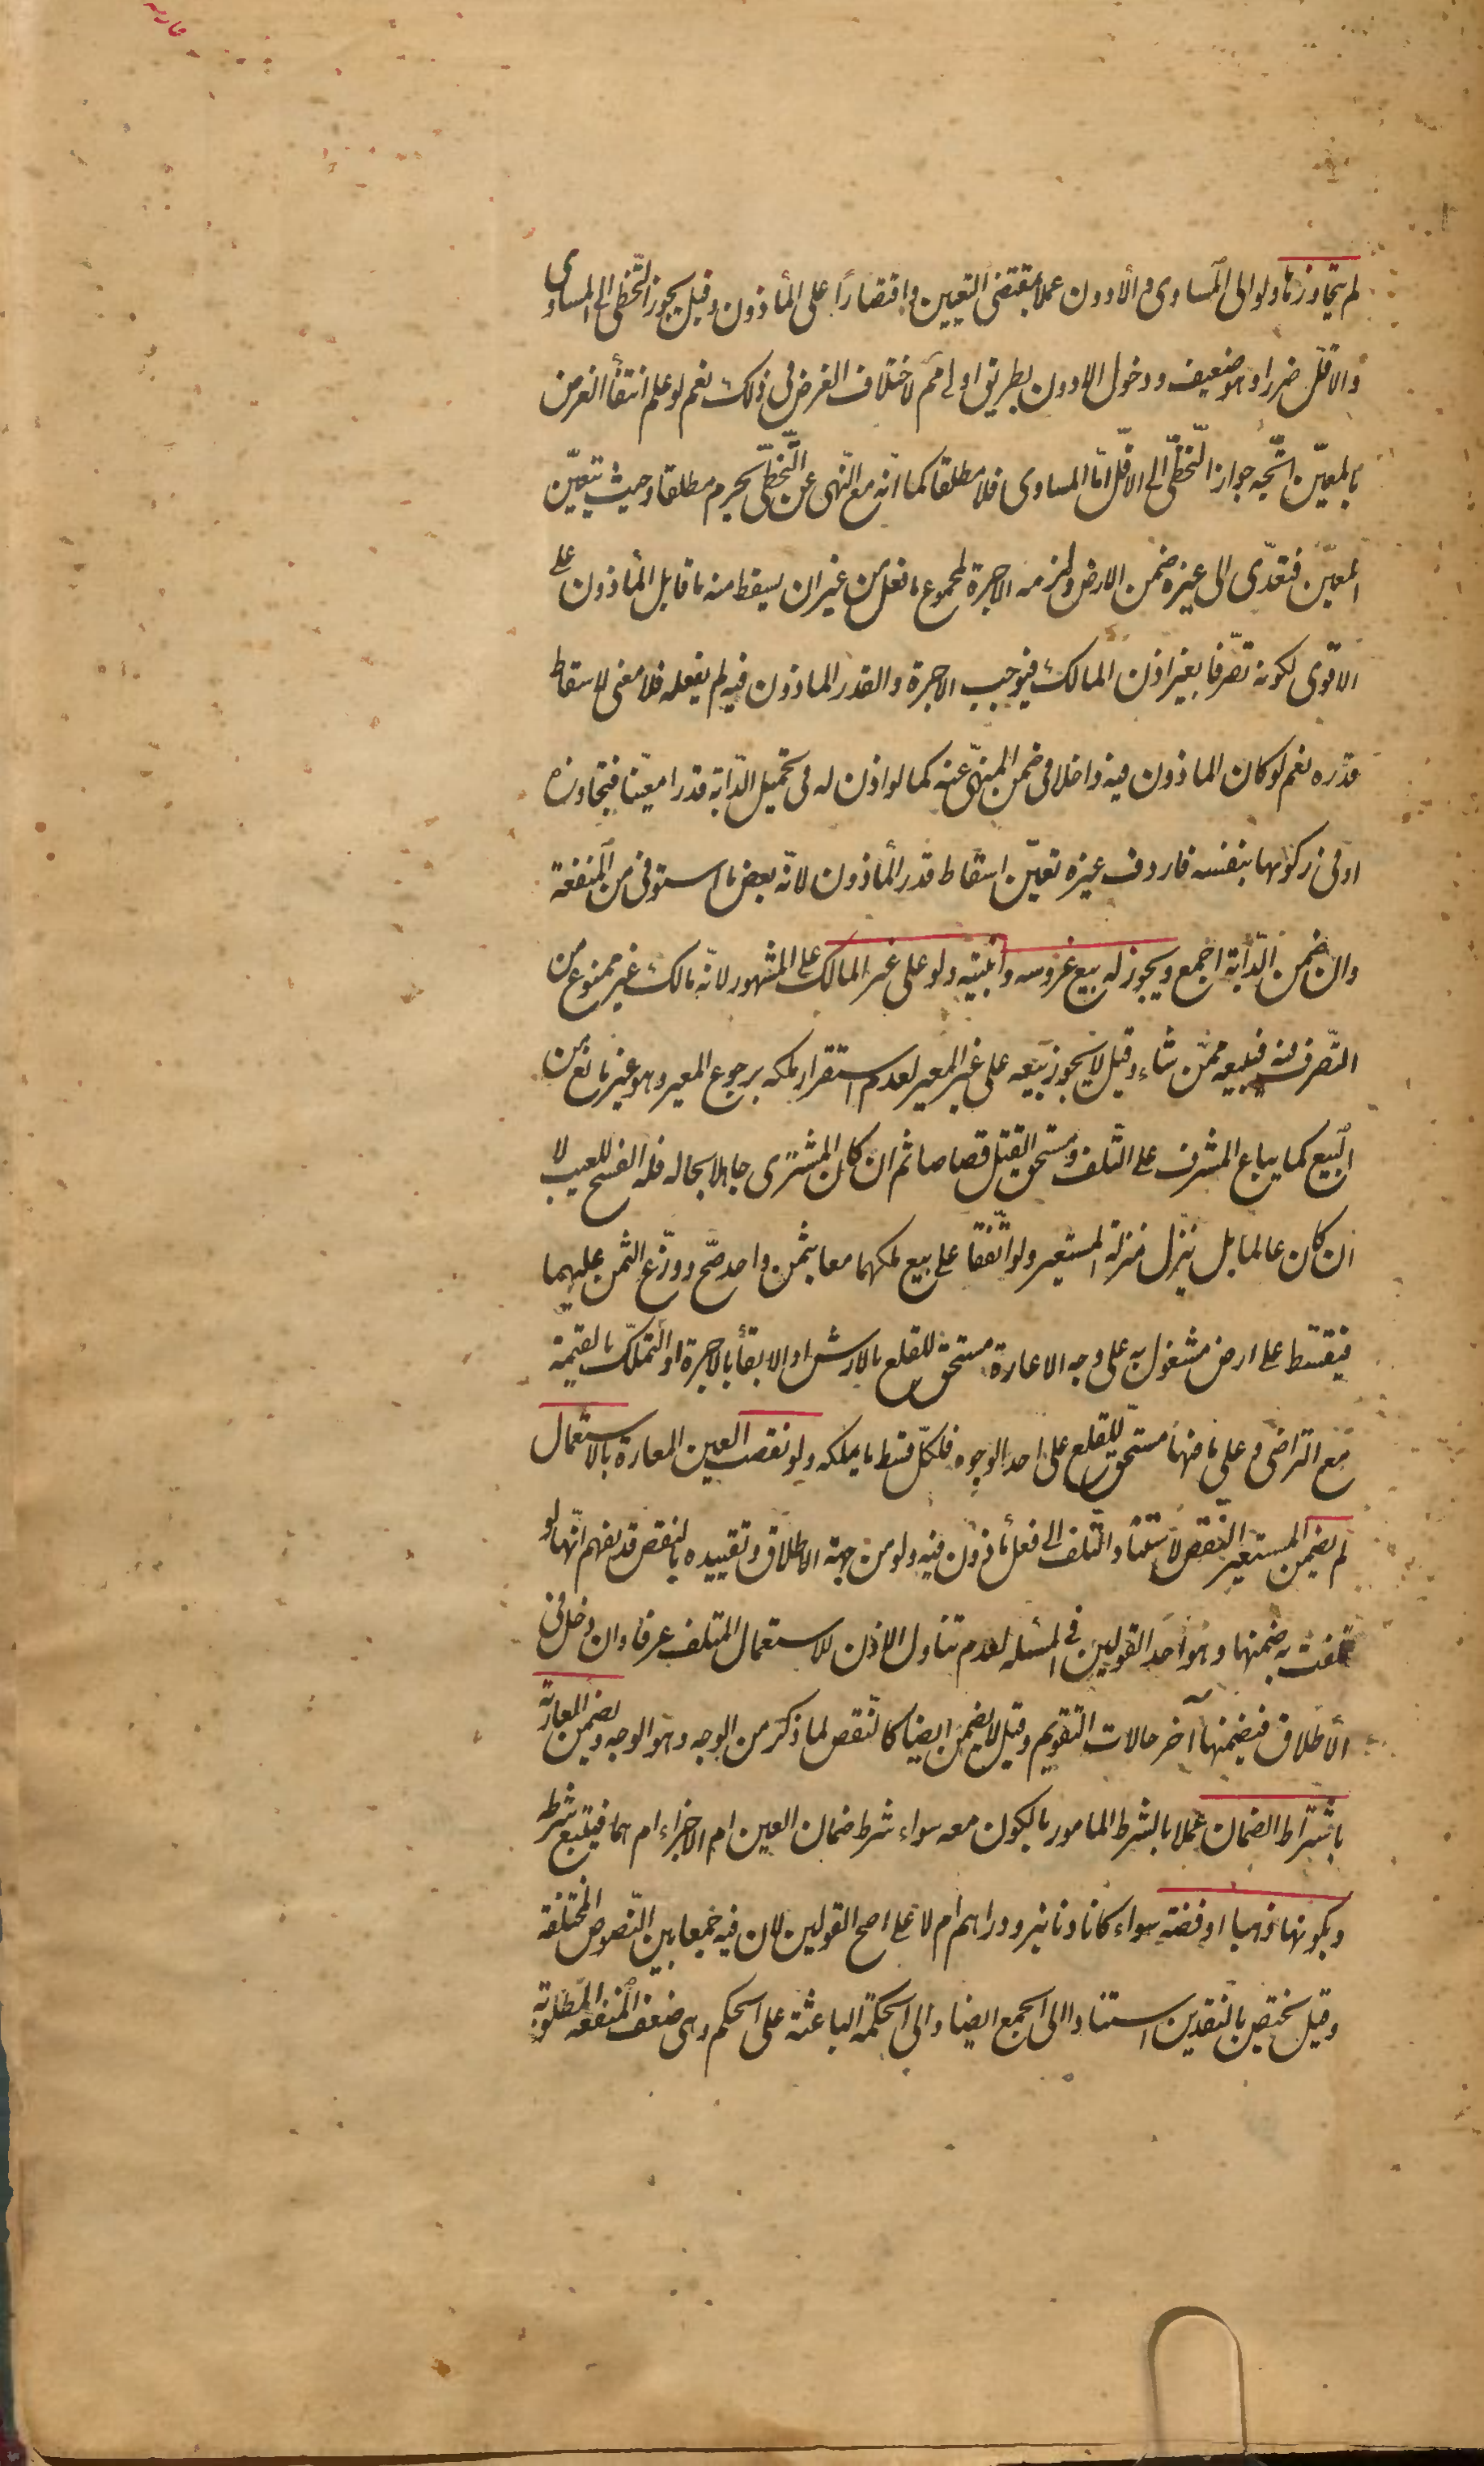 عارية
لم يتجاوزها ولو الى المساوى و الأدون عملا بمقتضى التعيين واقتصارًا على المأذون وقيل يجوز التّخطى الى المساوى
والاقلّ ضررا وهو ضعيف ودخول الادون بطريق اولى مم لاختلاف الغرض فى ذلك نعم لو علم انتفأ الغرض
بالمعيّن اتّجه جواز التّخطّى الى الاقلّ امّا المساوى فلا مطلقا كما انّه مع النّهى عن التّخطّى يحرم مطلقا وحيث يتعيّن
المعيّن فتعدّى الى غيره ضمن الارض ولزمه الاجرة لمجموع ما فعل من غير ان يسقط منه ما قابل المأذون على
الاقوى لكونه تصّرفا بغير اذن المالك فيوجب الاجرة والقدر الماذون فيه لم يفعله فلا معنى لاسقاط
قدره نعم لو كان الماذون فيه داخلا فى ضمن المنهىّ عنه كما لو اذن له فى تحميل الدّابة قدرا معيّنا فتجاوزه
او فى ركوبها بنفسه فاردف غيره تعيّن اسقاط قدر المأذون لانّه بعض ما استوفى من المنفعة
وان ضمن الدّابة اجمع ويجوز له بيع غروسه وابنيته ولو على غير المالك على المشهور لانّه مالك غير ممنوع من
التّصرف فيه فيبيعه ممّن شاء وقيل لا يجوز بيعه على غير المعير لعدم استقرار ملكه برجوع المعير وهو غير مانع من
البيع كما يباع المشرف على التّلف ومستحقّ القتل قصاصا ثم ان كان المشترى جاهلا بحاله فله الفسخ للعيب لا
ان كان عالما بل ينزل منزلة المستعير ولو اتّفقا على بيع ملكهما معا بثمن واحد صّح ووزّع الثمن عليهما
فيقسّط على ارض مشغولة به على وجه الاعارة مستحقّ للقلع بالارش او الابقأ بالاجرة او التّملّك بالقيمة
مع التراضى وعلى ما فيها مستحقّ للقلع على احد الوجوه فلكلّ قسط ما يملكه ولو نقصت العين المعارة بالاستعمال
لم يضمن المستعير النّقص لاستناد التّلف الى فعل مأذون فيه ولو من جهة الاطلاق وتقييده بالنقص قد يفهم انّها لو
تلفت به ضمنها وهو احد القولين فى المسئله لعدم تناول الاذن للاستعمال المتلف عرفا وان دخل فى
الاطلاق فيضمنها آخر حالات التقويم وقيل لا يضمن ايضا كالنّقص لما ذكر من الوجه وهو الوجه ويضمن العارية
باشتراط الضمان عملا بالشرط المامور بالكون معه سواء شرط ضمان العين ام الاجزاء ام هما فيتّبع شرطه
وبكونها ذهبا او فضة سواء كانا دنانير ودراهم ام لا على اصح القولين لان فيه جمعا بين النّصوص المختلفة
وقيل يختص بالنّقدين استنادا الى الجمع ايضا والى الحكمة الباعثة على الحكم وهى ضعف المنفعة المطلوبة